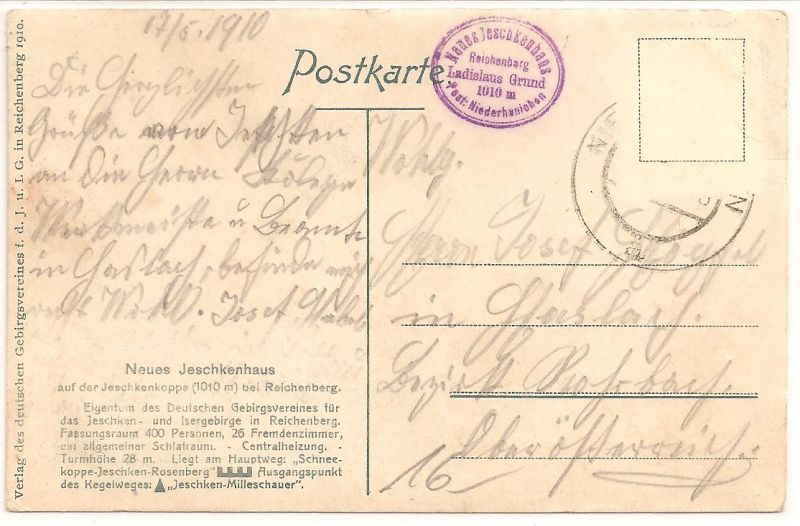 17/5. 1910
Die Herzlichsten
Grüße vom Jeschken
an die Herrn Kollegen
Werkmeister u Beamte
in Haslach, befinde mich
Wohl. Josef
Postkarte
Neues Jeschkenhaus
Reichenberg
Ladislaus Grund
1010 m
Post: Niederhanichen
Wohlg.
Herrn Josef
in Haslach.
Bezirk Rohrbach.
Oberösterreich.
16
Neues Jeschkenhaus
auf der Jeschkenkoppe (1010 m) bei Reichenberg.
Eigentum des Deutschen Gebirgsvereines für
das Jeschken- und Isergebirge in Reichenberg.
Fassungsraum 400 Personen, 26 Fremdenzimmer,
ein allgemeiner Schlafraum. - Centralheizung. -
Turmhöhe 28 m. - Liegt am Hauptweg. „Schnee-
koppe-Jeschken-Rosenberg" Ausgangspunkt
des Kegelweges: „Jeschken-Milleschauer".
Verlag des deutschen Gebirgsvereines f. d. J. u. I. G. in Reichenberg 1910.